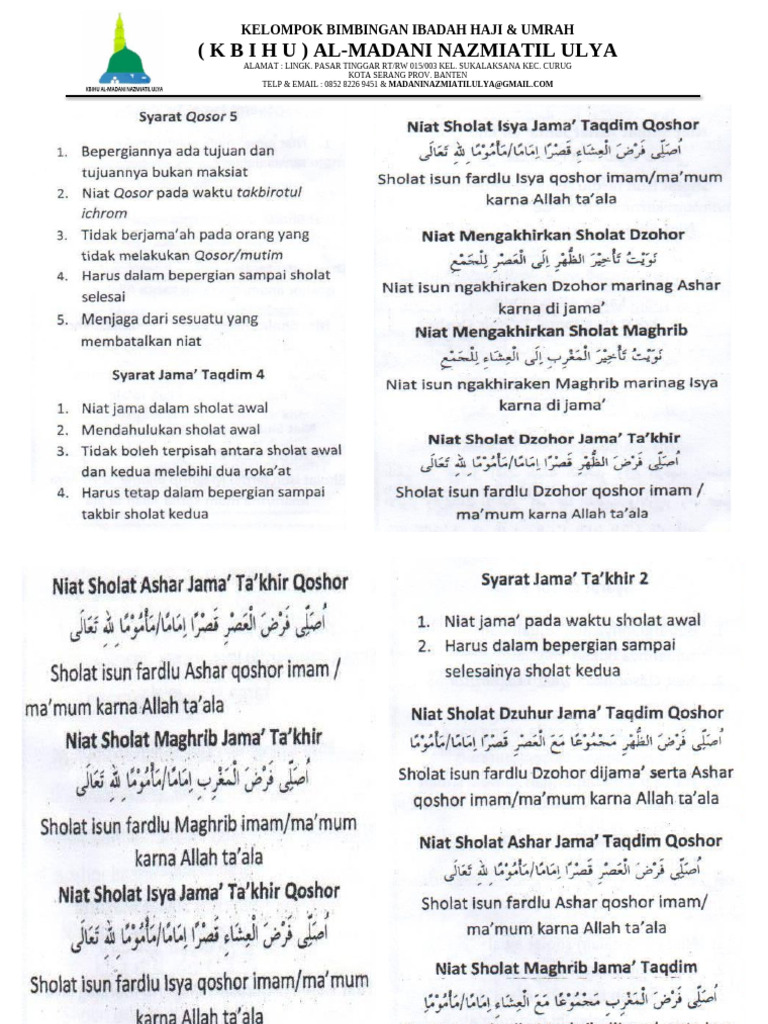 KBIHU AL-MADANI NAZMIATIL ULYA
KELOMPOK BIMBINGAN IBADAH HAJI & UMRAH
( K B I H U ) AL-MADANI NAZMIATIL ULYA
ALAMAT : LINGK. PASAR TINGGAR RT/RW 015/003 KEL. SUKALAKSANA KEC. CURUG
KOTA SERANG PROV. BANTEN
TELP & EMAIL : 0852 8226 9451 & MADANINAZMIATILULYA@GMAIL.COM
Syarat Qosor 5
1. Bepergiannya ada tujuan dan
tujuannya bukan maksiat
2. Niat Qosor pada waktu takbirotul
ichrom
3. Tidak berjama'ah pada orang yang
tidak melakukan Qosor/mutim
4. Harus dalam bepergian sampai sholat
selesai
5. Menjaga dari sesuatu yang
membatalkan niat
Syarat Jama' Taqdim 4
1. Niat jama dalam sholat awal
2. Mendahulukan sholat awal
3. Tidak boleh terpisah antara sholat awal
dan kedua melebihi dua roka'at
4. Harus tetap dalam bepergian sampai
takbir sholat kedua
Niat Sholat Isya Jama' Taqdim Qoshor
اُصَلِّى فَرْضَ الْعِشَاءِ قَصْرًا اِمَامًا/مَأْمُوْمًا لِلّٰهِ تَعَالَى
Sholat isun fardlu Isya qoshor imam/ma'mum
karna Allah ta'ala
Niat Mengakhirkan Sholat Dzohor
نَوَيْتُ تَأْخِيْرَ الظُّهْرِ اِلَى الْعَصْرِ لِلْجَمْعِ
Niat isun ngakhiraken Dzohor marinag Ashar
karna di jama'
Niat Mengakhirkan Sholat Maghrib
نَوَيْتُ تَأْخِيْرَ الْمَغْرِبِ اِلَى الْعِشَاءِ لِلْجَمْعِ
Niat isun ngakhiraken Maghrib marinag Isya
karna di jama'
Niat Sholat Dzohor Jama' Ta'khir
اُصَلِّى فَرْضَ الظُّهْرِ قَصْرًا اِمَامًا/مَأْمُوْمًا لِلّٰهِ تَعَالَى
Sholat isun fardlu Dzohor qoshor imam /
ma'mum karna Allah ta'ala
Niat Sholat Ashar Jama' Ta'khir Qoshor
اُصَلِّى فَرْضَ الْعَصْرِ قَصْرًا اِمَامًا/مَأْمُوْمًا لِلّٰهِ تَعَالَى
Sholat isun fardlu Ashar qoshor imam /
ma'mum karna Allah ta'ala
Niat Sholat Maghrib Jama' Ta'khir
اُصَلِّى فَرْضَ الْمَغْرِبِ اِمَامًا/مَأْمُوْمًا لِلّٰهِ تَعَالَى
Sholat isun fardlu Maghrib imam/ma'mum
karna Allah ta'ala
Niat Sholat Isya Jama' Ta'khir Qoshor
اُصَلِّى فَرْضَ الْعِشَاءِ قَصْرًا اِمَامًا/مَأْمُوْمًا لِلّٰهِ تَعَالَى
Sholat isun fardlu Isya qoshor imam/ma'mum
karna Allah ta'ala
Syarat Jama' Ta'khir 2
1. Niat jama' pada waktu sholat awal
2. Harus dalam bepergian sampai
selesainya sholat kedua
Niat Sholat Dzuhur Jama' Taqdim Qoshor
اُصَلِّى فَرْضَ الظُّهْرِ مَجْمُوْعًا مَعَ الْعَصْرِ قَصْرًا اِمَامًا/مَأْمُوْمًا
Sholat isun fardlu Dzohor dijama' serta Ashar
qoshor imam/ma'mum karna Allah ta'ala
Niat Sholat Ashar Jama' Taqdim Qoshor
اُصَلِّى فَرْضَ الْعَصْرِ قَصْرًا اِمَامًا/مَأْمُوْمًا لِلّٰهِ تَعَالَى
Sholat isun fardlu Ashar qoshor imam/
ma'mum karna Allah ta'ala
Niat Sholat Maghrib Jama' Taqdim
اُصَلِّى فَرْضَ الْمَغْرِبِ مَجْمُوْعًا مَعَ الْعِشَاءِ اِمَامًا/مَأْمُوْمًا